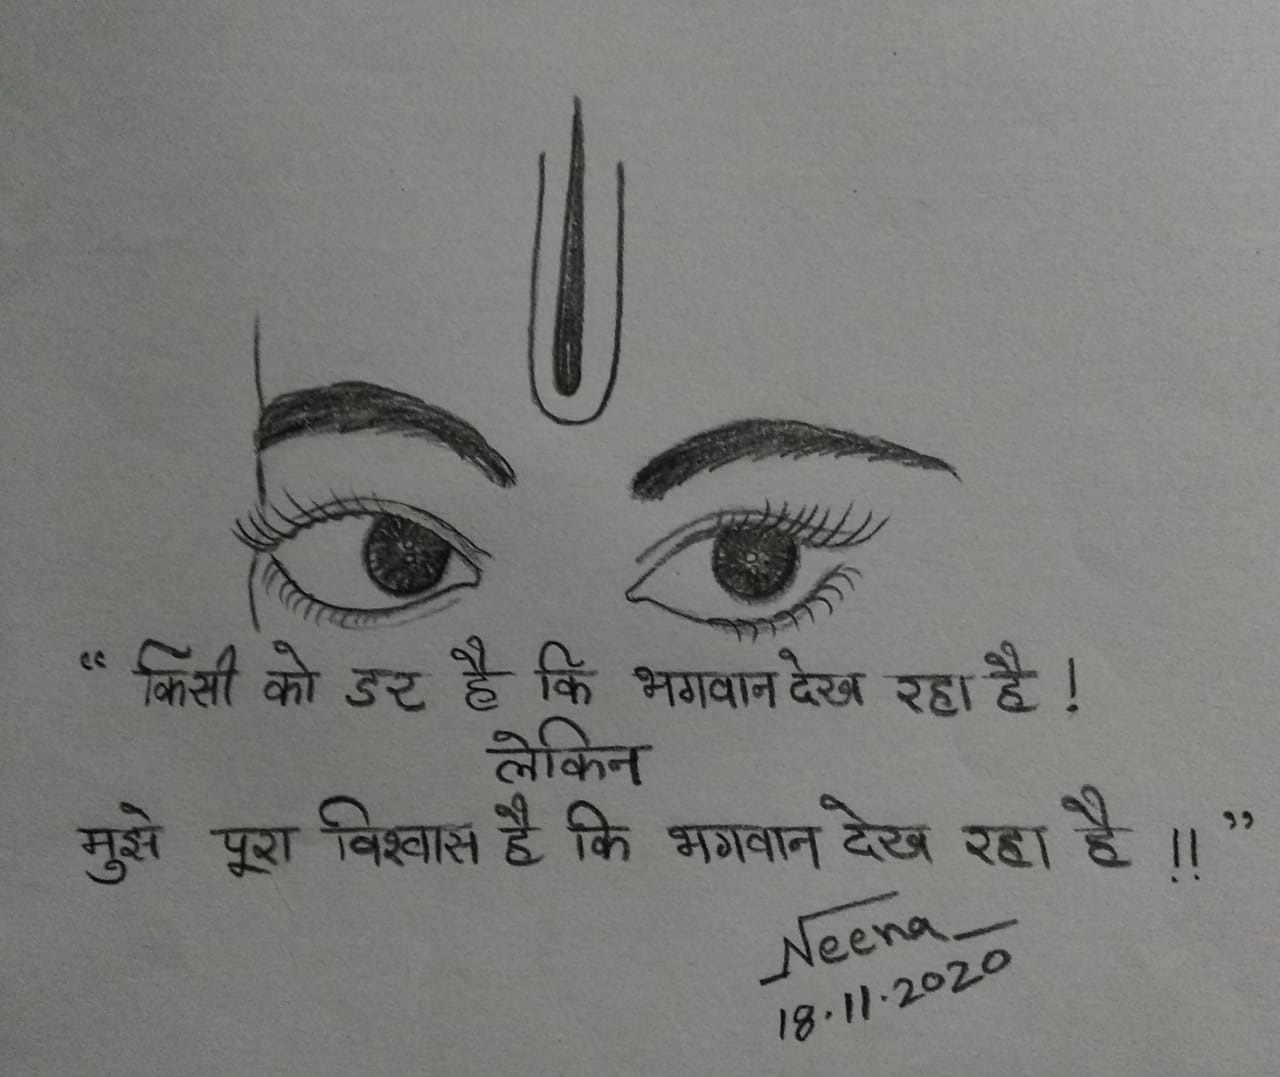 “ किसी को डर है कि भगवान देख रहा है !
लेकिन
मुझे पूरा विश्वास है कि भगवान देख रहा है !! ”
Neena
18.11.2020